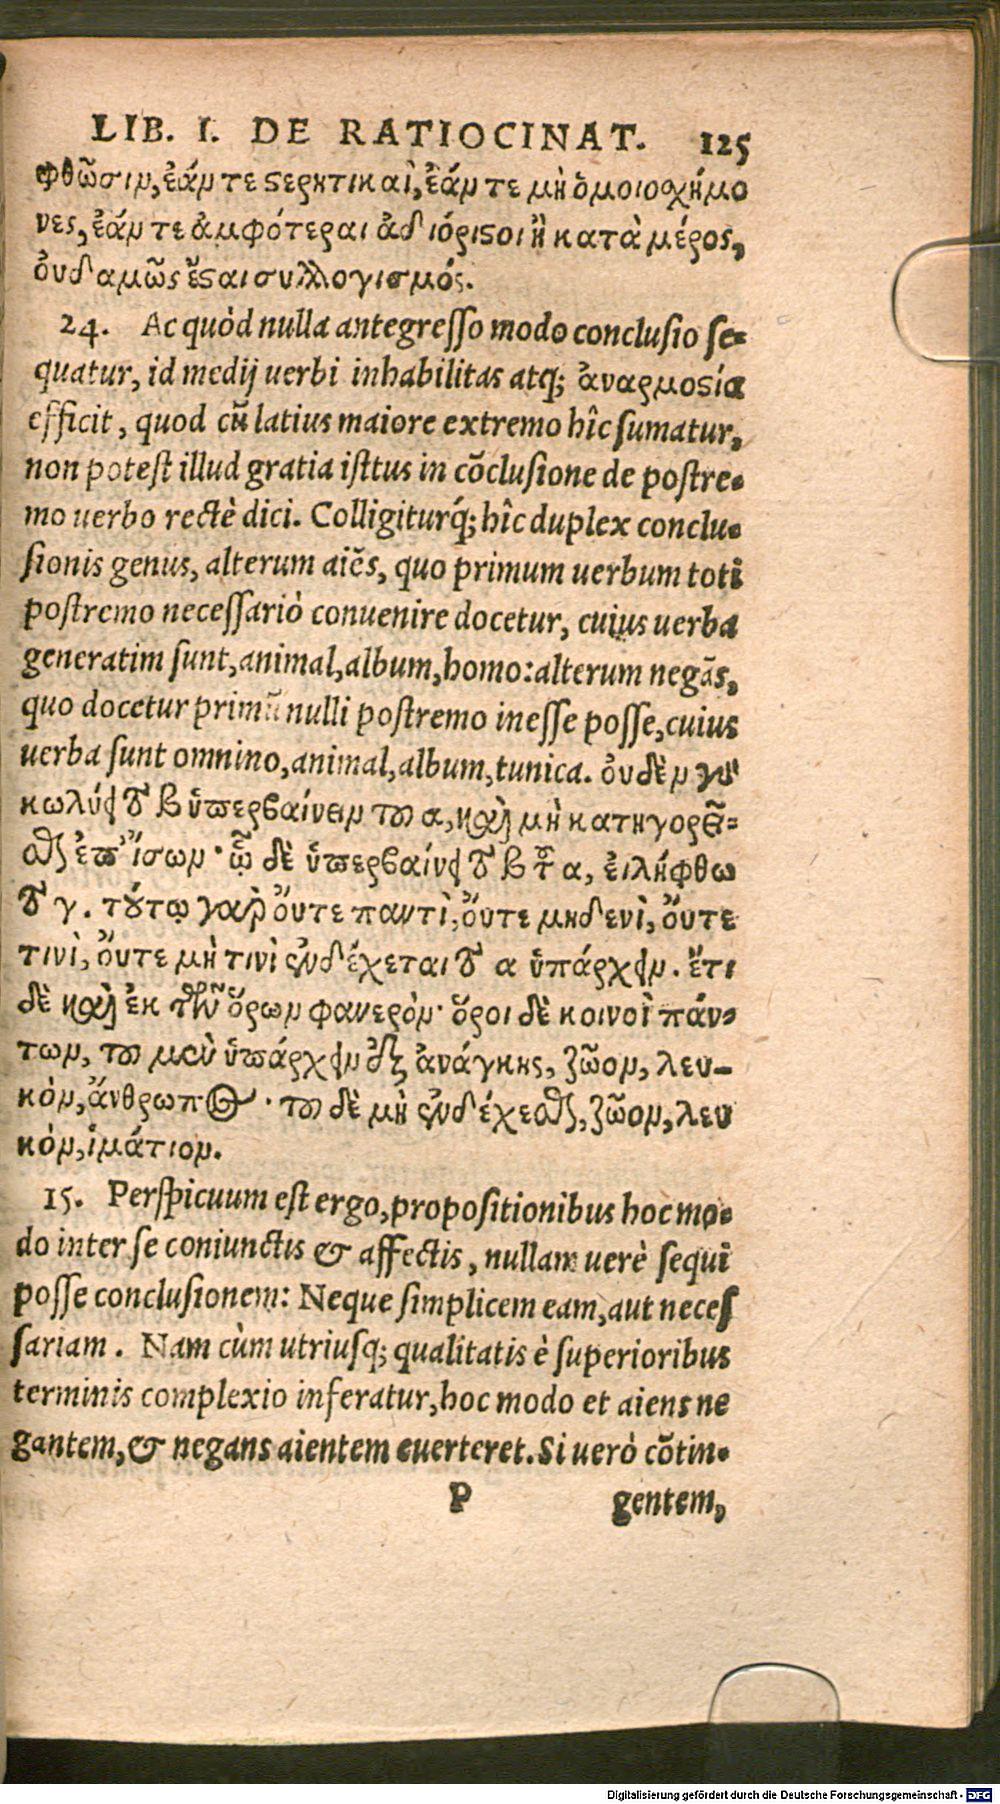 LIB. I. DE RATIOCINAT. 125
φθῶσιν, ἐάν τε ϛερητικαὶ, ἐάν τε μὴ ὁμοιοσχήμο
νες, ἐάν τε ἀμφότεραι ἀδιόριϛοι ἢ κατὰ μέρος,
ὀυδαμῶς ἔϛαι συλλογισμός.
24. Ac quòd nulla antegresso modo conclusio se-
quatur, id medij uerbi inhabilitas atq; ἀναρμοϛία
efficit, quod cũ latius maiore extremo hîc sumatur,
non potest illud gratia istius in cõclusione de postre-
mo uerbo rectè dici. Colligiturq́; hîc duplex conclu-
sionis genus, alterum aiẽs, quo primum uerbum toti
postremo necessariò conuenire docetur, cuius uerba
generatim sunt, animal, album, homo: alterum negãs,
quo docetur primũ nulli postremo inesse posse, cuius
uerba sunt omnino, animal, album, tunica. ὀυδὲν γὰρ
κωλύει τὸ β ὑπερβαίνειν τὸ α, καὶ μὴ κατηγορεῖ-
σθαι ἐπ' ἴσων· ᾧ δὲ ὑπερβαίνει τὸ β τοῦ α, ἐιλήφθω
τὸ γ. τούτῳ γὰρ ὄυτε παντὶ, ὄυτε μηδενὶ, ὄυτε
τινὶ, ὄυτε μὴ τινὶ ἐνδέχεται τὸ α ὑπάρχειν. ἔτι
δὲ καὶ ἐκ τῶν ὅρων φανερὸν· ὅροι δὲ κοινοὶ πάν-
των, τοῦ μὲν ὑπάρχειν ἐξ ἀνάγκης, ζῶον, λευ-
κὸν, ἄνθρωπος· τοῦ δὲ μὴ ἐνδέχεσθαι, ζῶον, λευ
κὸν, ἱμάτιον.
15. Perspicuum est ergo, propositionibus hoc mo-
do inter se coniunctis & affectis, nullam uerè sequi
posse conclusionem: Neque simplicem eam, aut neces
sariam. Nam cùm utriusq; qualitatis è superioribus
terminis complexio inferatur, hoc modo et aiens ne
gantem, & negans aientem euerteret. Si uerò cõtin-
P gentem,
Digitalisierung gefördert durch die Deutsche Forschungsgemeinschaft - DFG